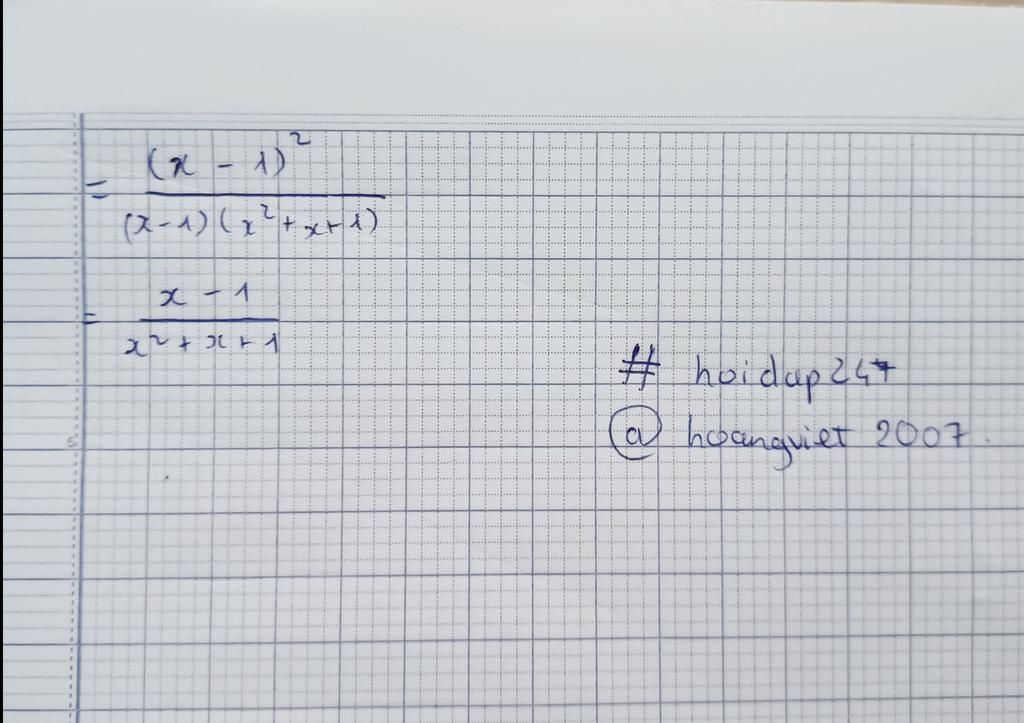 = (x - 1)² / (x-1)(x²+x+1)
= x - 1 / x²+x+1
# hoidap247
@ hoangviet 2007.